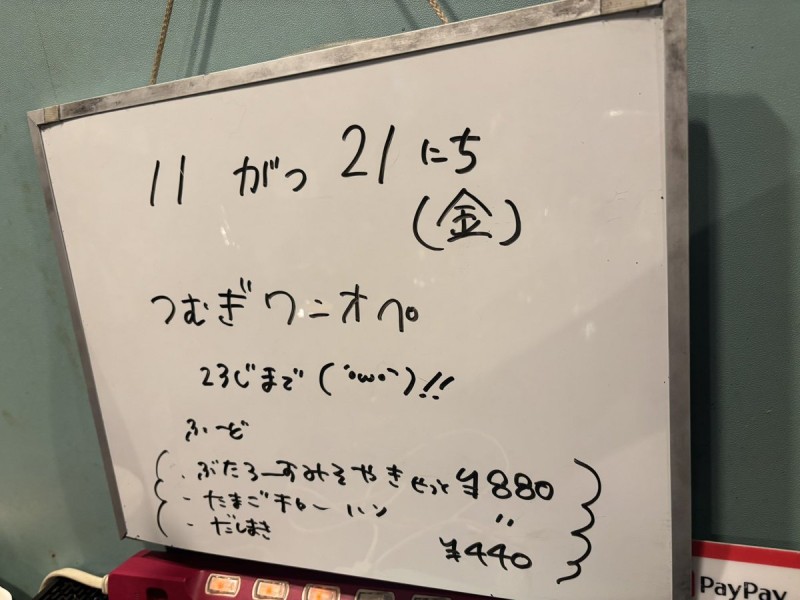 11 がつ 21 にち
(金)
つむぎワンオペ
23じまで (´・ω・`)!!
ふーど
・ぶたろーすみそやきせっと ¥880
- たまごチャーハン 〃
- だしまき ¥440
PayPay